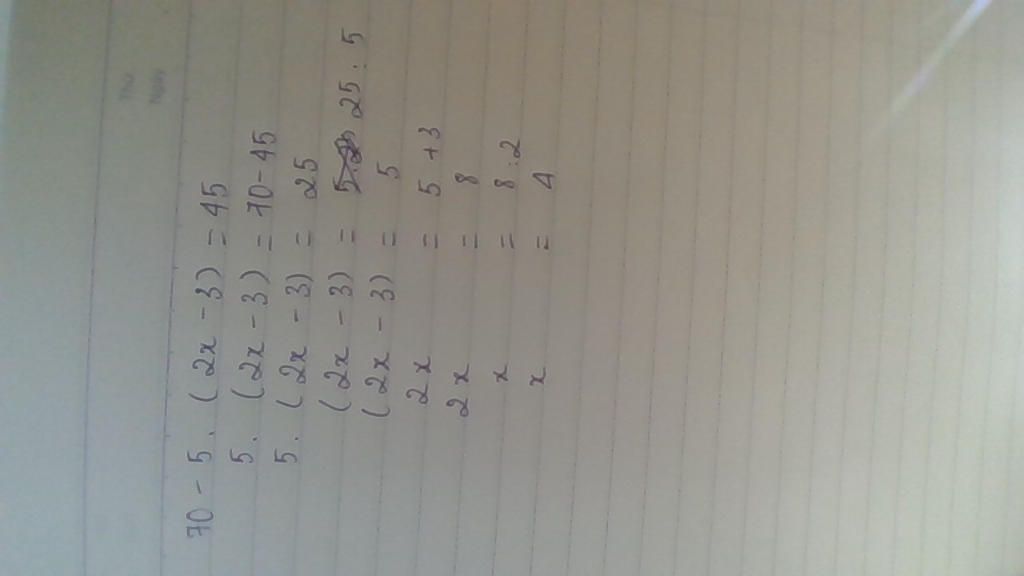 Thứ
Ngày
70 - 5. (2x - 3) = 45
5. (2x - 3) = 70 - 45
5. (2x - 3) = 25
(2x - 3) = 25 : 5
(2x - 3) = 5
2x = 5 + 3
2x = 8
x = 8 : 2
x = 4